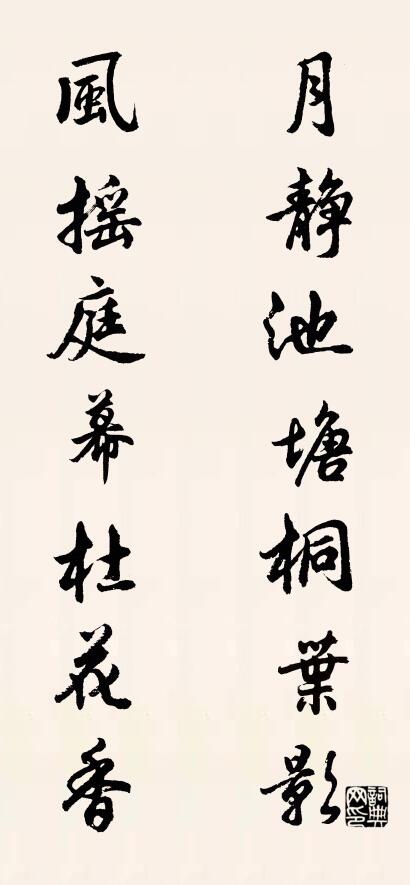 月靜池塘桐葉影
風摇庭幕杜花香
詞典網印